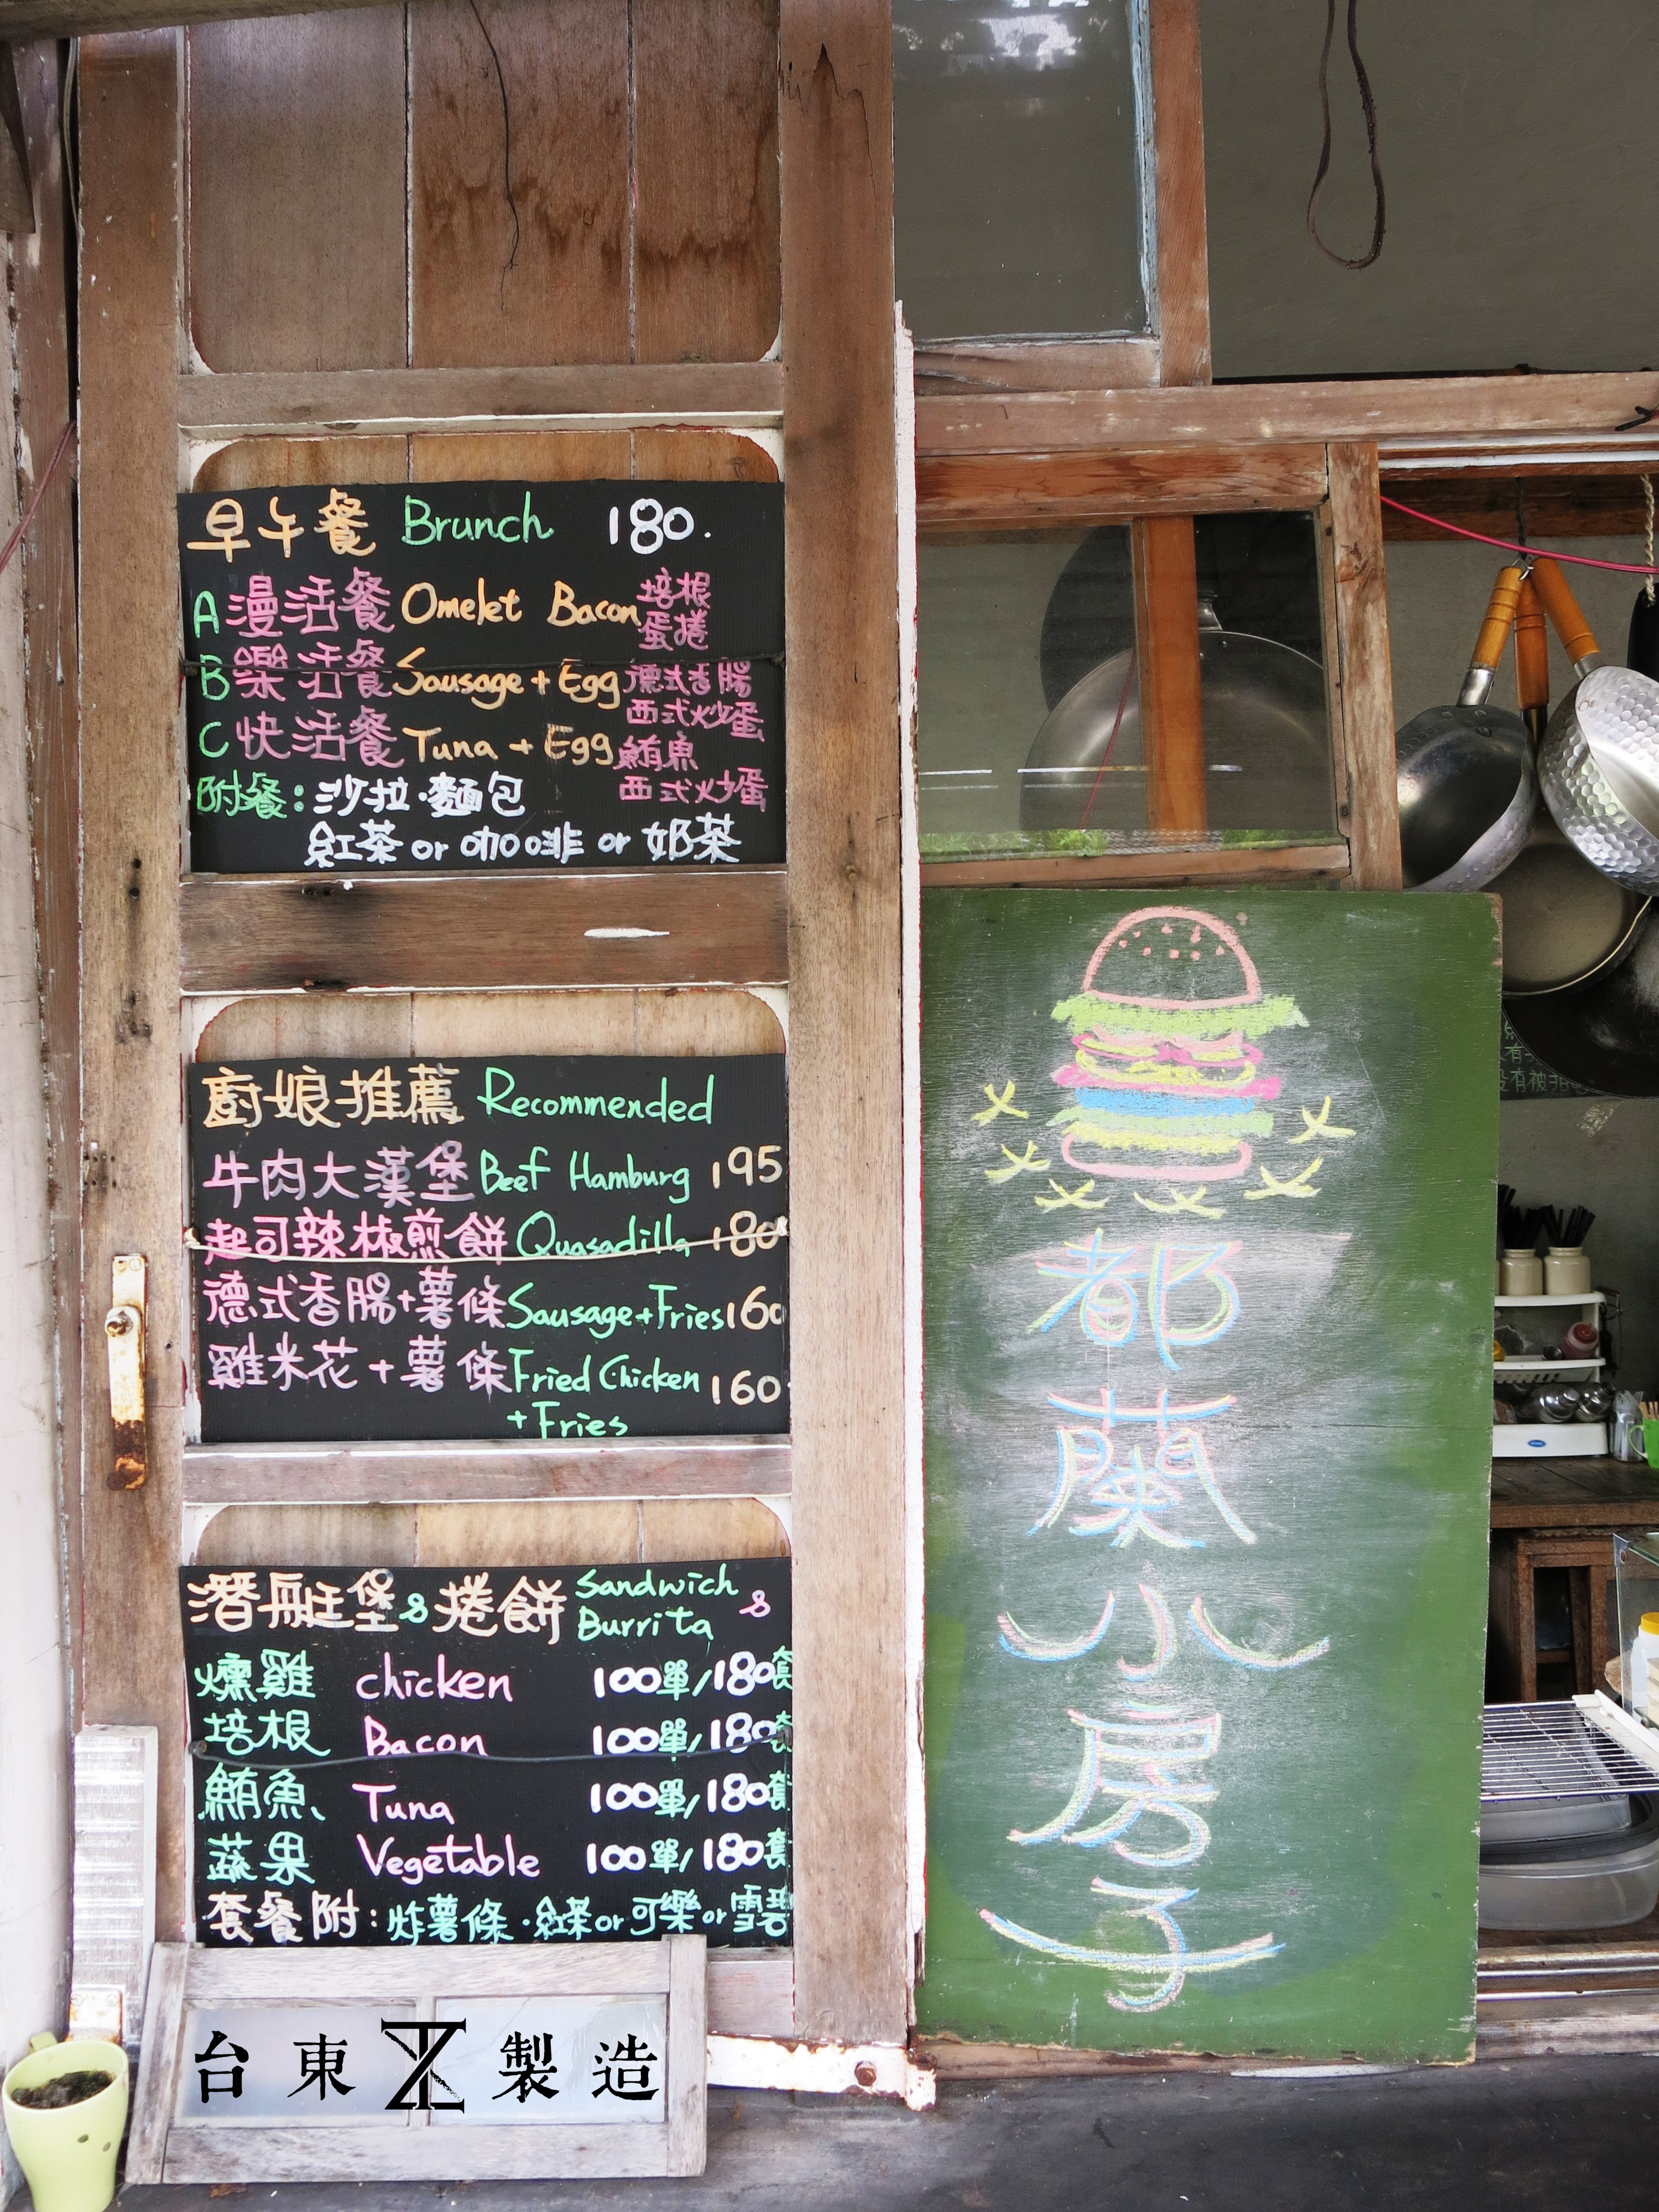 早午餐 Brunch 180.
A 漫活餐 Omelet Bacon 培根蛋捲
B 樂活餐 Sausage + Egg 德式香腸 西式炒蛋
C 快活餐 Tuna + Egg 鮪魚 西式炒蛋
附餐:沙拉·麵包
紅茶 or 咖啡 or 奶茶
廚娘推薦 Recommended
牛肉大漢堡 Beef Hamburg 195
起司辣椒煎餅 Quasadilla 180
德式香腸+薯條 Sausage+Fries 160
雞米花+薯條 Fried Chicken 160.
+Fries
潛艇堡&捲餅 Sandwich & Burrita
燻雞 chicken 100單/180套
培根 Bacon 100單/180套
鮪魚 Tuna 100單/180套
蔬果 Vegetable 100單/180套
套餐附:炸薯條·紅茶or可樂or雪碧
都蘭小房子
台東製造